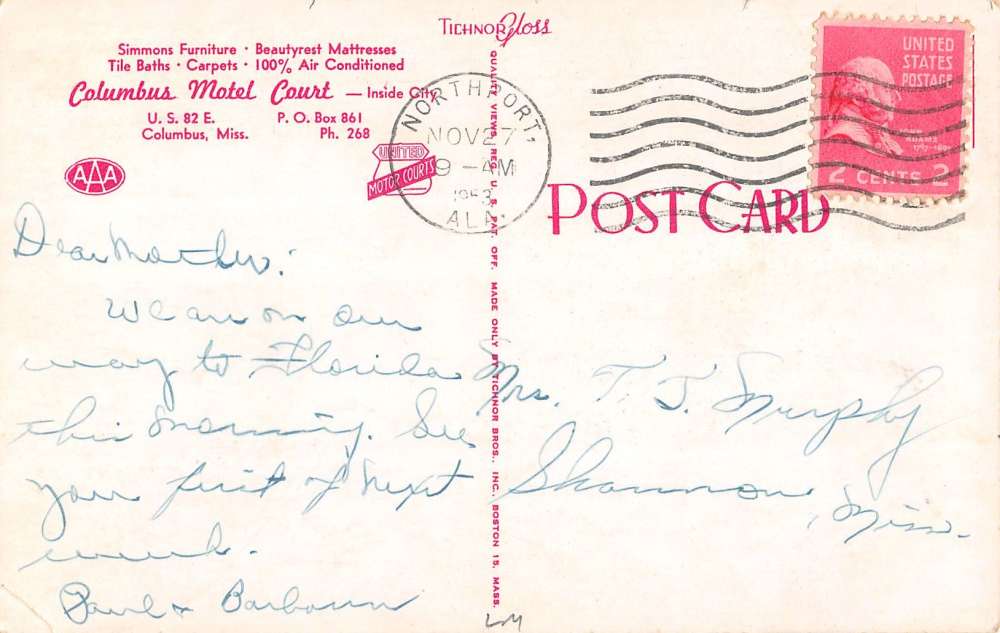 TICHNOR Gloss
Simmons Furniture · Beautyrest Mattresses
Tile Baths · Carpets · 100% Air Conditioned
Columbus Motel Court — Inside City
U. S. 82 E. P. O. Box 861
Columbus, Miss. Ph. 268
AAA
UNITED
MOTOR COURTS
NORTHPORT,
NOV 27
9 - AM
1953
ALA.
UNITED
STATES
POSTAGE
ADAMS
2 CENTS 2
POST CARD
QUALITY VIEWS, REG. U. S. PAT. OFF. MADE ONLY BY TICHNOR BROS., INC., BOSTON 15, MASS.
Dear Mother:
We are on our
way to Florida
this morning. See
you first of next
week.
Paul & Barbara
Mrs. T. J. Murphy
Shannon,
Miss.